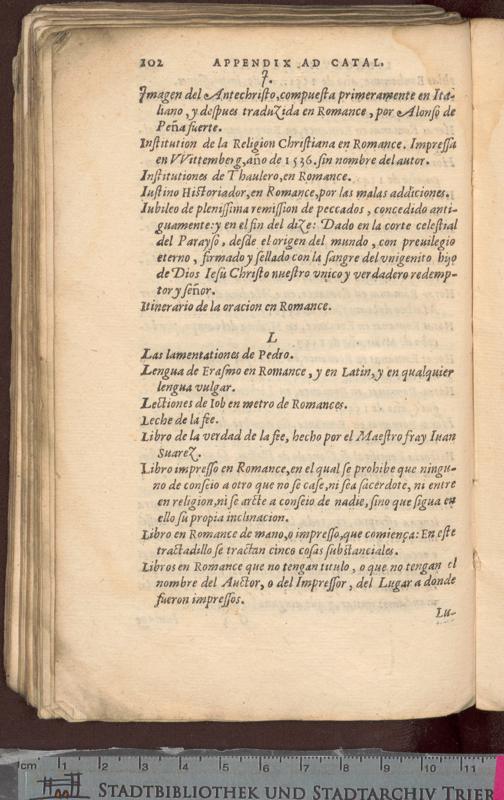 102 APPENDIX AD CATAL.
J.
Jmagen del Antechristo, compuesta primeramente en Ita-
liano, y despues traduzida en Romance, por Alonso de
Peña fuerte.
Institution de la Religion Christiana en Romance. Impressa
en VVittemberg, año de 1536. sin nombre del autor.
Institutiones de Thaulero, en Romance.
Iustino Historiador, en Romance, por las malas addiciones.
Iubileo de plenissima remission de peccados, concedido anti-
guamente: y en el fin del dize: Dado en la corte celestial
del Parayso, desde el origen del mundo, con preuilegio
eterno, firmado y sellado con la sangre del vnigenito hijo
de Dios Iesu Christo nuestro vnico y verdadero redemp-
tor y señor.
Itinerario de la oracion en Romance.
L
Las lamentationes de Pedro.
Lengua de Erasmo en Romance, y en Latin, y en qualquier
lengua vulgar.
Lectiones de Iob en metro de Romances.
Leche de la fee.
Libro de la verdad de la fee, hecho por el Maestro fray Iuan
Suarez.
Libro impresso en Romance, en el qual se prohibe que ningu-
no de conseio a otro que no se case, ni sea sacerdote, ni entre
en religion, ni se arcte a conseio de nadie, sino que sigua en
ello su propia inclinacion.
Libro en Romance de mano, o impresso, que comiença: En este
tractadillo se tractan cinco cosas substanciales.
Libros en Romance que no tengan titulo, o que no tengan el
nombre del Auctor, o del Impressor, del Lugar a donde
fueron impressos.
Lu-
cm 1 2 3 4 5 6 7 8 9 10 11
STADTBIBLIOTHEK UND STADTARCHIV TRIER